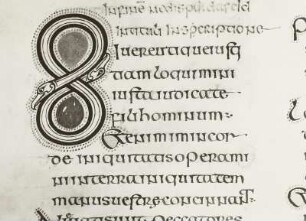 In finem ne disp
In tituli Inscriptione
Si uere utique iusti
tiam loquimini
iusta iudicate
filii hominum
Etenim in cor
de iniquitatis operami
ni in terra iniquitatem
manus uestrae concinnant
peccatores